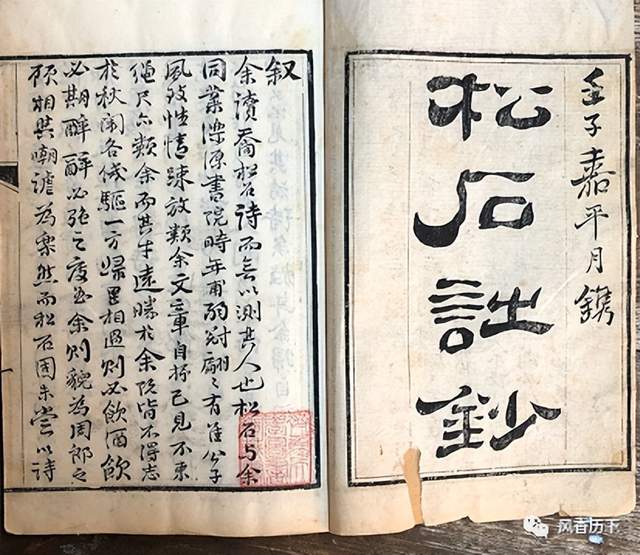 壬子嘉平月鐫
松石詩鈔
叙
余讀喬松石詩而無以測其人也松石与余
同業濼源書院時年甫弱冠翩〻有佳公子
風致性情疎放類余文章自抒己見不束
繩尺亦類余而其才遠勝於余既皆不得志
於秋闈各饑驅一方歸里相遇則必飲酒飲
必期醉醉必强之度曲余則貌為周郎之
顧相與嘲謔為樂然而松石固未嘗以詩
风香历下